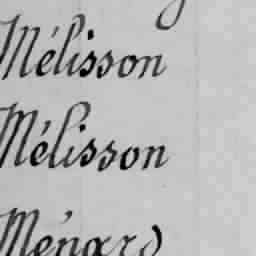 Mélisson
Mélisson
Ménard